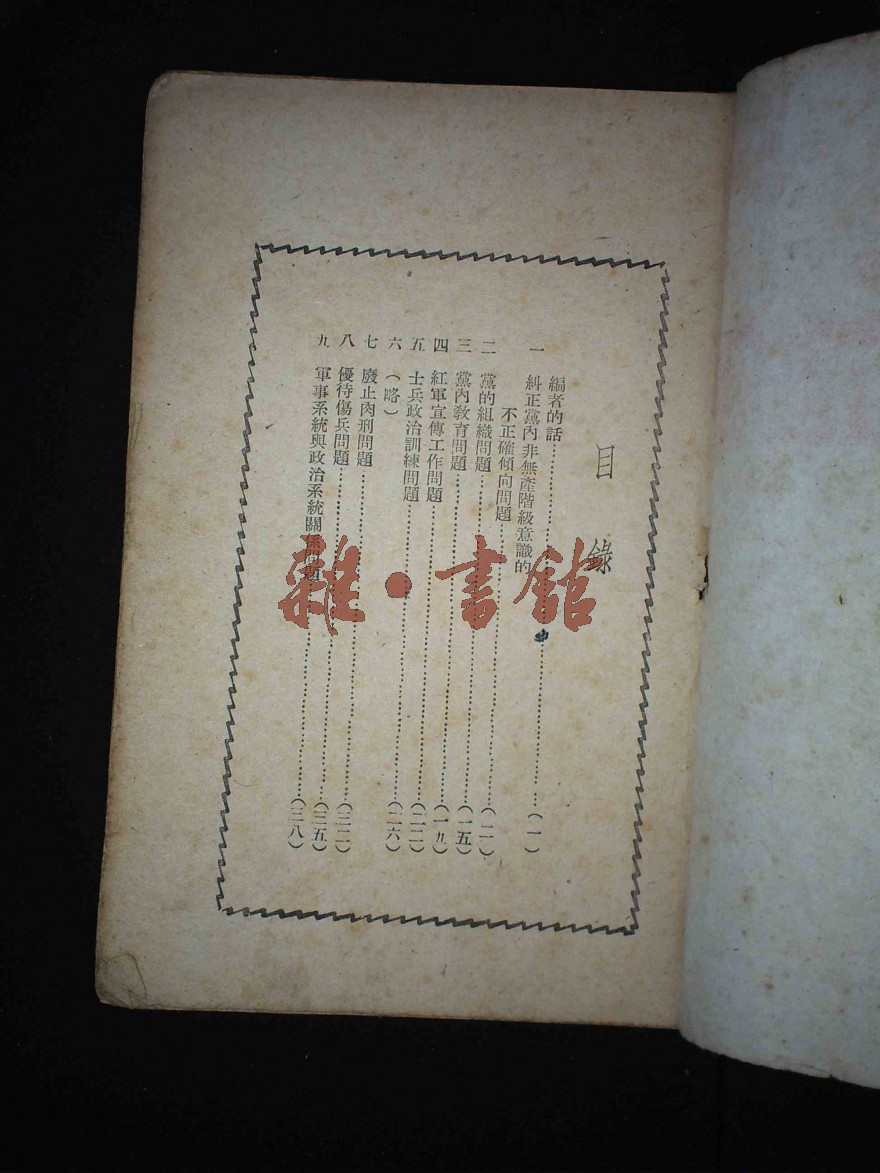 目錄
編者的話……(一)
一 糾正黨內非無產階級意識的
不正確傾向問題……(二)
二 黨的組織問題……(一五)
三 黨內教育問題……(一九)
四 紅軍宣傳工作問題……(二二)
五 士兵政治訓練問題……(二六)
六 (略)
七 廢止肉刑問題……(三二)
八 優待傷兵問題……(三五)
九 軍事系統與政治系統關係問題……(三八)
雜·書館